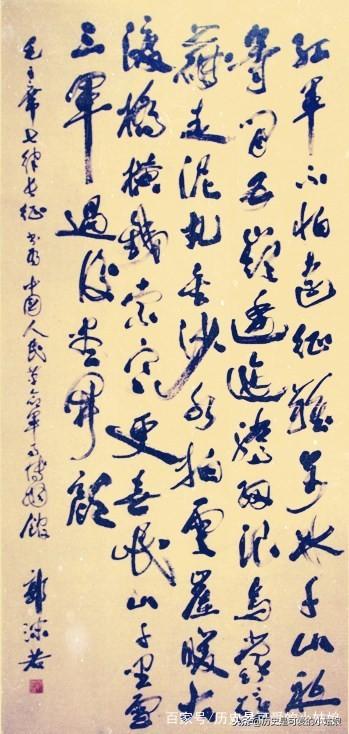 紅軍不怕遠征難萬水千山祇
等閒五嶺逶迤騰細浪烏蒙磅
礴走泥丸金沙水拍雲崖暖大
渡橋橫鐵索寒更喜岷山千里雪
三軍過後盡開顏
毛主席七律長征 書為中國人民革命軍事博物館
郭沫若
百家号/历史是可爱的小姑娘
头条@历史是可爱的小姑娘